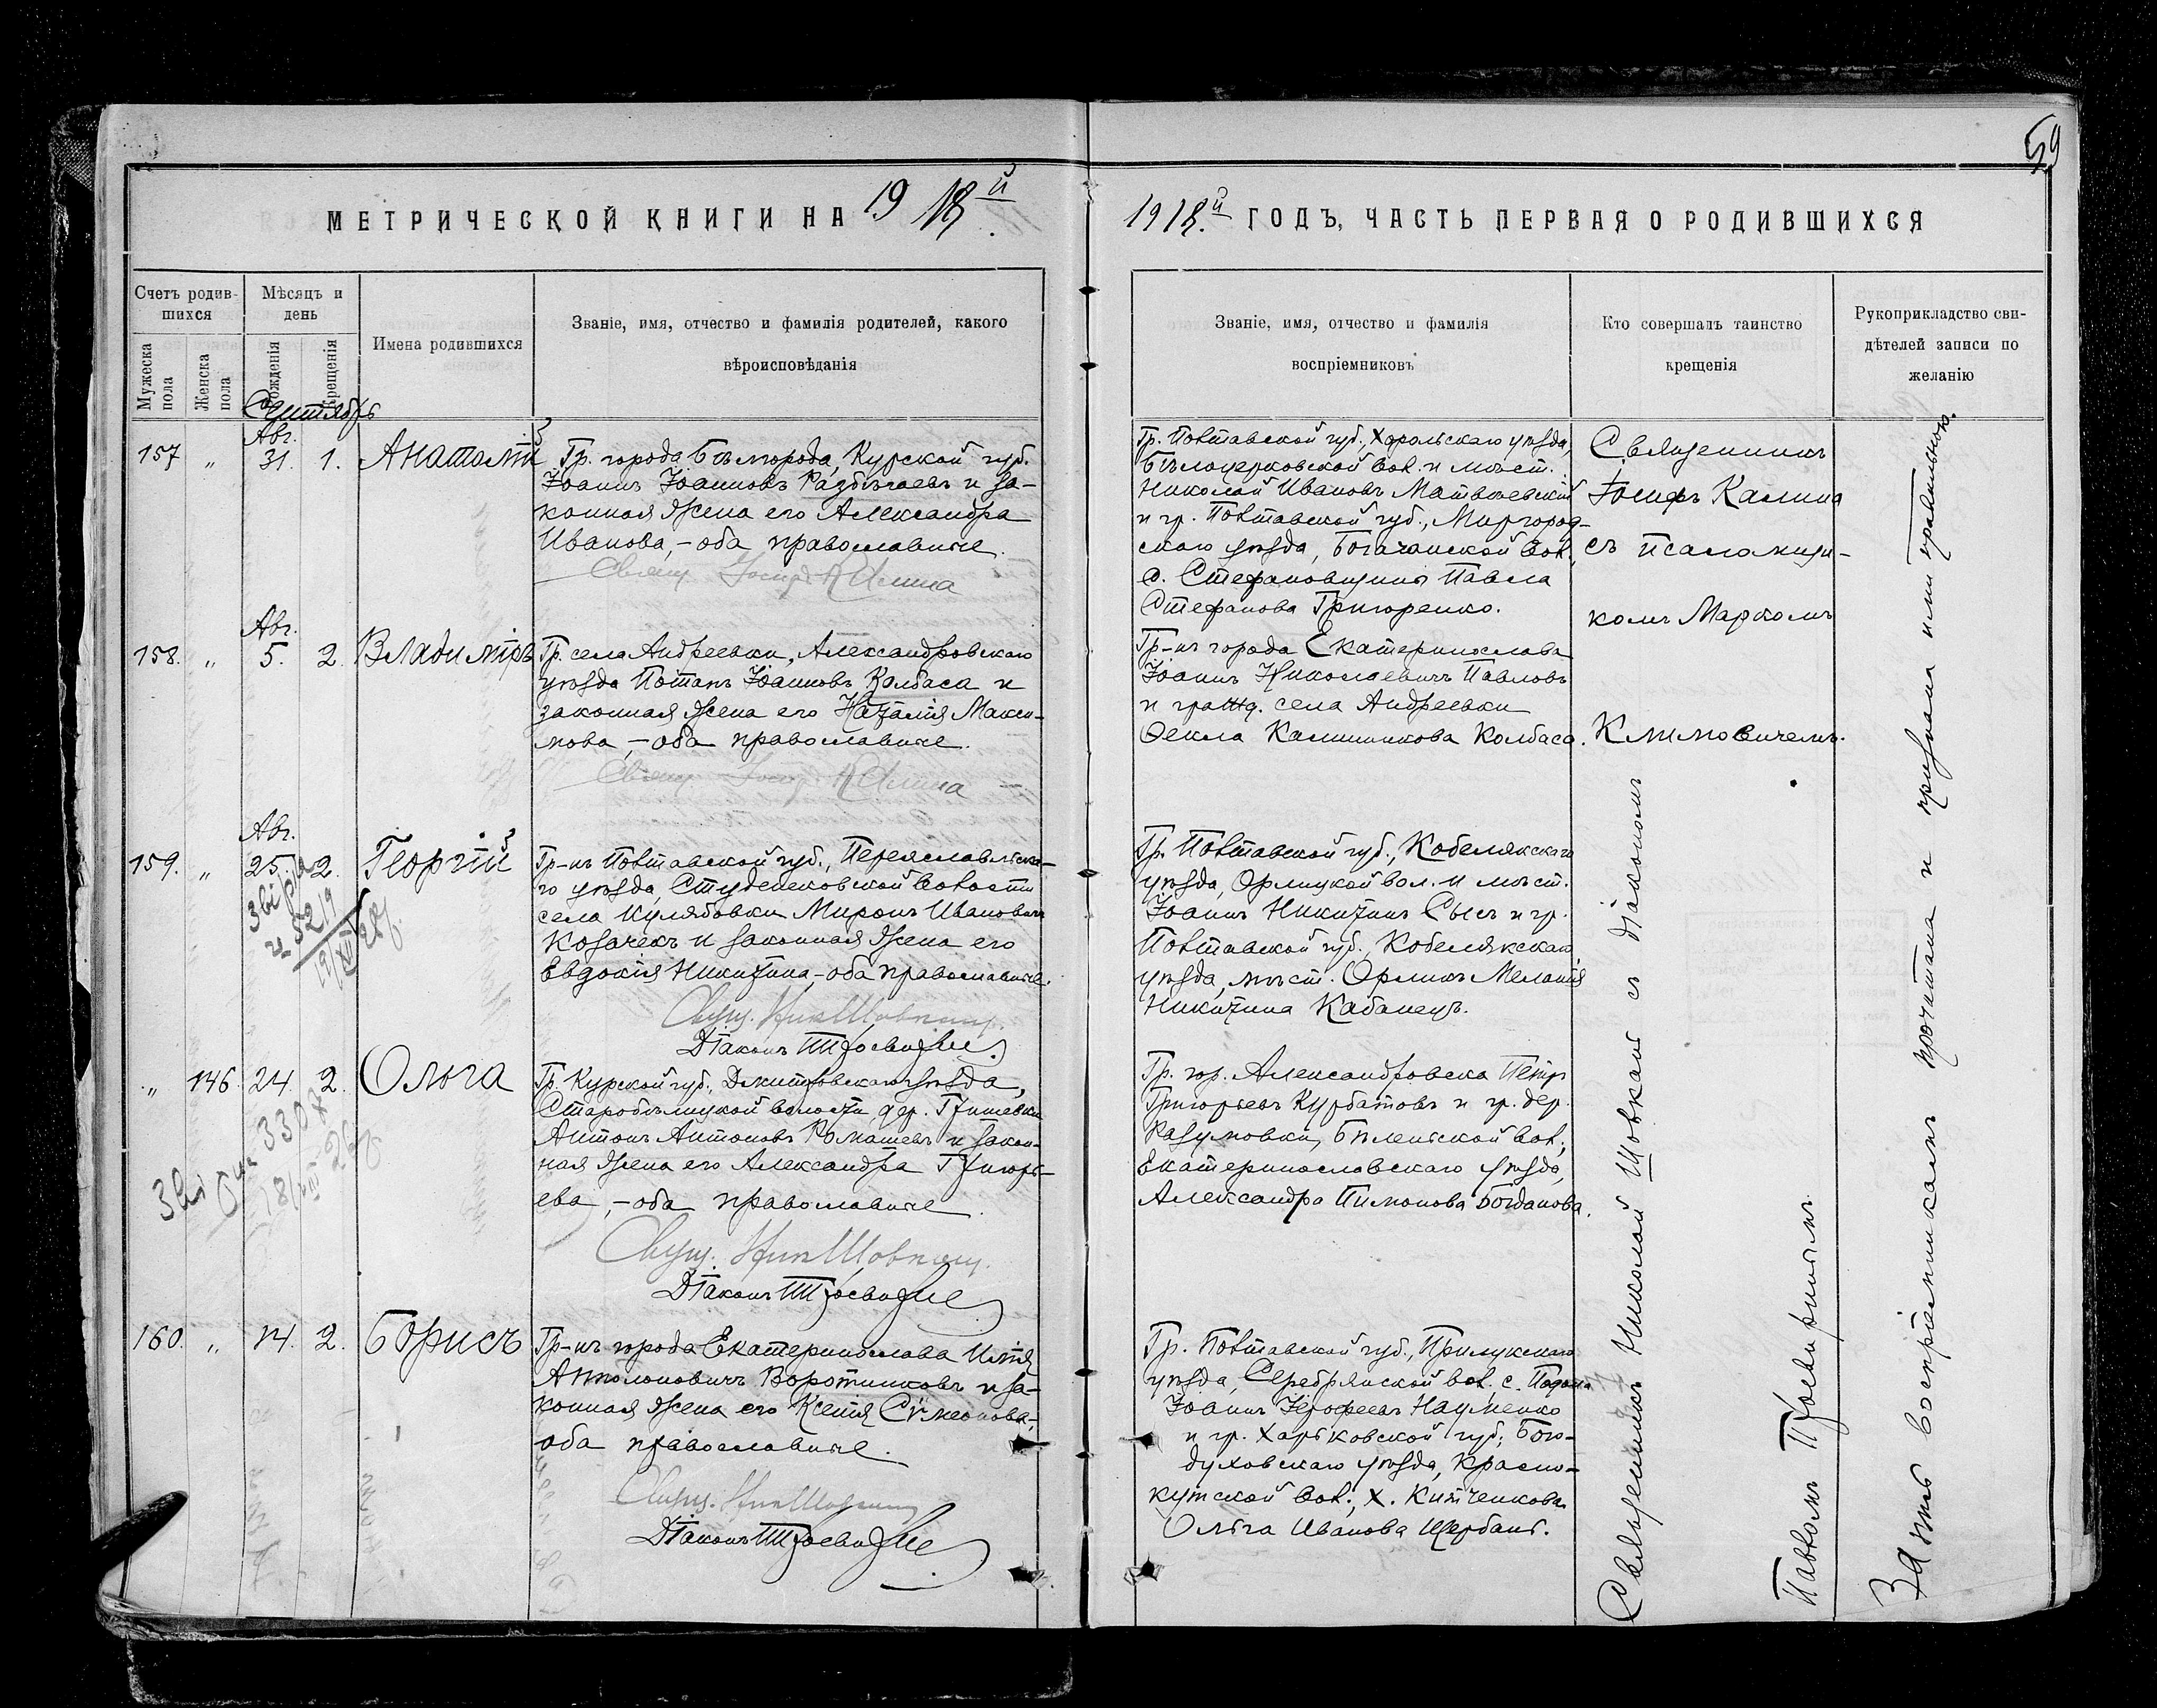 59
МЕТРИЧЕСКОЙ КНИГИ НА 1918й
1918.й ГОДЪ, ЧАСТЬ ПЕРВАЯ О РОДИВШИХСЯ
Счетъ родив-
шихся
Мужеска
пола
Женска
пола
Мѣсяцъ и
день
Рожденія
Крещенія
Имена родившихся
Званіе, имя, отчество и фамилія родителей, какого
вѣроисповѣданія
Званіе, имя, отчество и фамилія
воспріемниковъ
Кто совершалъ таинство
крещенія
Рукоприкладство сви-
дѣтелей записи по
желанію
Сентябрь
157 „ Авг. 31. 1. Анатолій
Гр. города Бѣлгорода, Курской губ.
Іоаннъ Іоанновъ Разбѣгаевъ и за-
конная жена его Александра
Иванова, – оба православные.
Свящ. Іосифъ Калина
Гр. Полтавской губ., Хорольскаго уѣзда,
Бѣлоцерковской вол. и мѣст.
Николай Ивановъ Матвѣевскій
и гр. Полтавской губ., Миргород-
скаго уѣзда, Богачанской вол.,
с. Стефановщины Павла
Стефанова Григоренко.
Священникъ
Іосифъ Калина
съ псаломщи-
комъ Маркомъ
Климовичемъ.
158. „ Авг. 5. 2. Владиміръ
Гр. села Андреевки, Александровскаго
уѣзда Потапъ Іоанновъ Колбаса и
законная жена его Наталія Макси-
мова, – оба православные.
Свящ. Іосифъ Калина
Гр-нъ города Екатеринослава
Іоаннъ Николаевичъ Павловъ
и гражд. села Андреевки
Ѳекла Калинникова Колбаса.
159. „ Авг. 25. 2. Георгій
Гр-нъ Полтавской губ., Переяславльска-
го уѣзда, Студениковской волости
села Кулябовки Миронъ Ивановичъ
Козачекъ и законная жена его
Евдокія Никитина, – оба православные.
Свящ. Ник Шовкань.
Діаконъ П Тροевич
Гр. Полтавской губ., Кобелякскаго
уѣзда, Орлицкой вол. и мѣст.
Іоаннъ Никитинъ Сысъ и гр.
Полтавской губ., Кобелякскаго
уѣзда, мѣст. Орликъ Меланія
Никитина Кабанецъ.
„ 146. 24. 2. Ольга
Гр. Курской губ., Дмитровскаго уѣзда,
Старобѣлицкой волости, дер. Гришевки
Антонъ Антоновъ Ромашевъ и закон-
ная жена его Александра Григорь-
ева, – оба православные.
Свящ. Ник Шовкань.
Гр. гор. Александровска Петръ
Григорьевъ Курбатовъ и гр. дер.
Разумовки, Бѣленьской вол.,
Екатеринославскаго уѣзда,
Александра Пимонова Богданова.
160. „ 14. 2. Борисъ
Гр-нъ города Екатеринослава Илія
Апполоновичъ Воротниковъ и за-
конная жена его Ксенія Сѵмеонова,-
оба православные.
Гр. Полтавской губ., Прилукскаго
уѣзда, Серебрянской вол. с.
Іоаннъ Іерофеевъ Науменко
и гр. Харьковской губ., Бого-
духовскаго уѣзда, Красно-
кутской вол., х. Китченкова
Ольга Иванова Щербань.
Священникъ Николай Шовкань съ діакономъ
Павломъ
Запись воспріемникамъ прочитана и признана ими правильною.